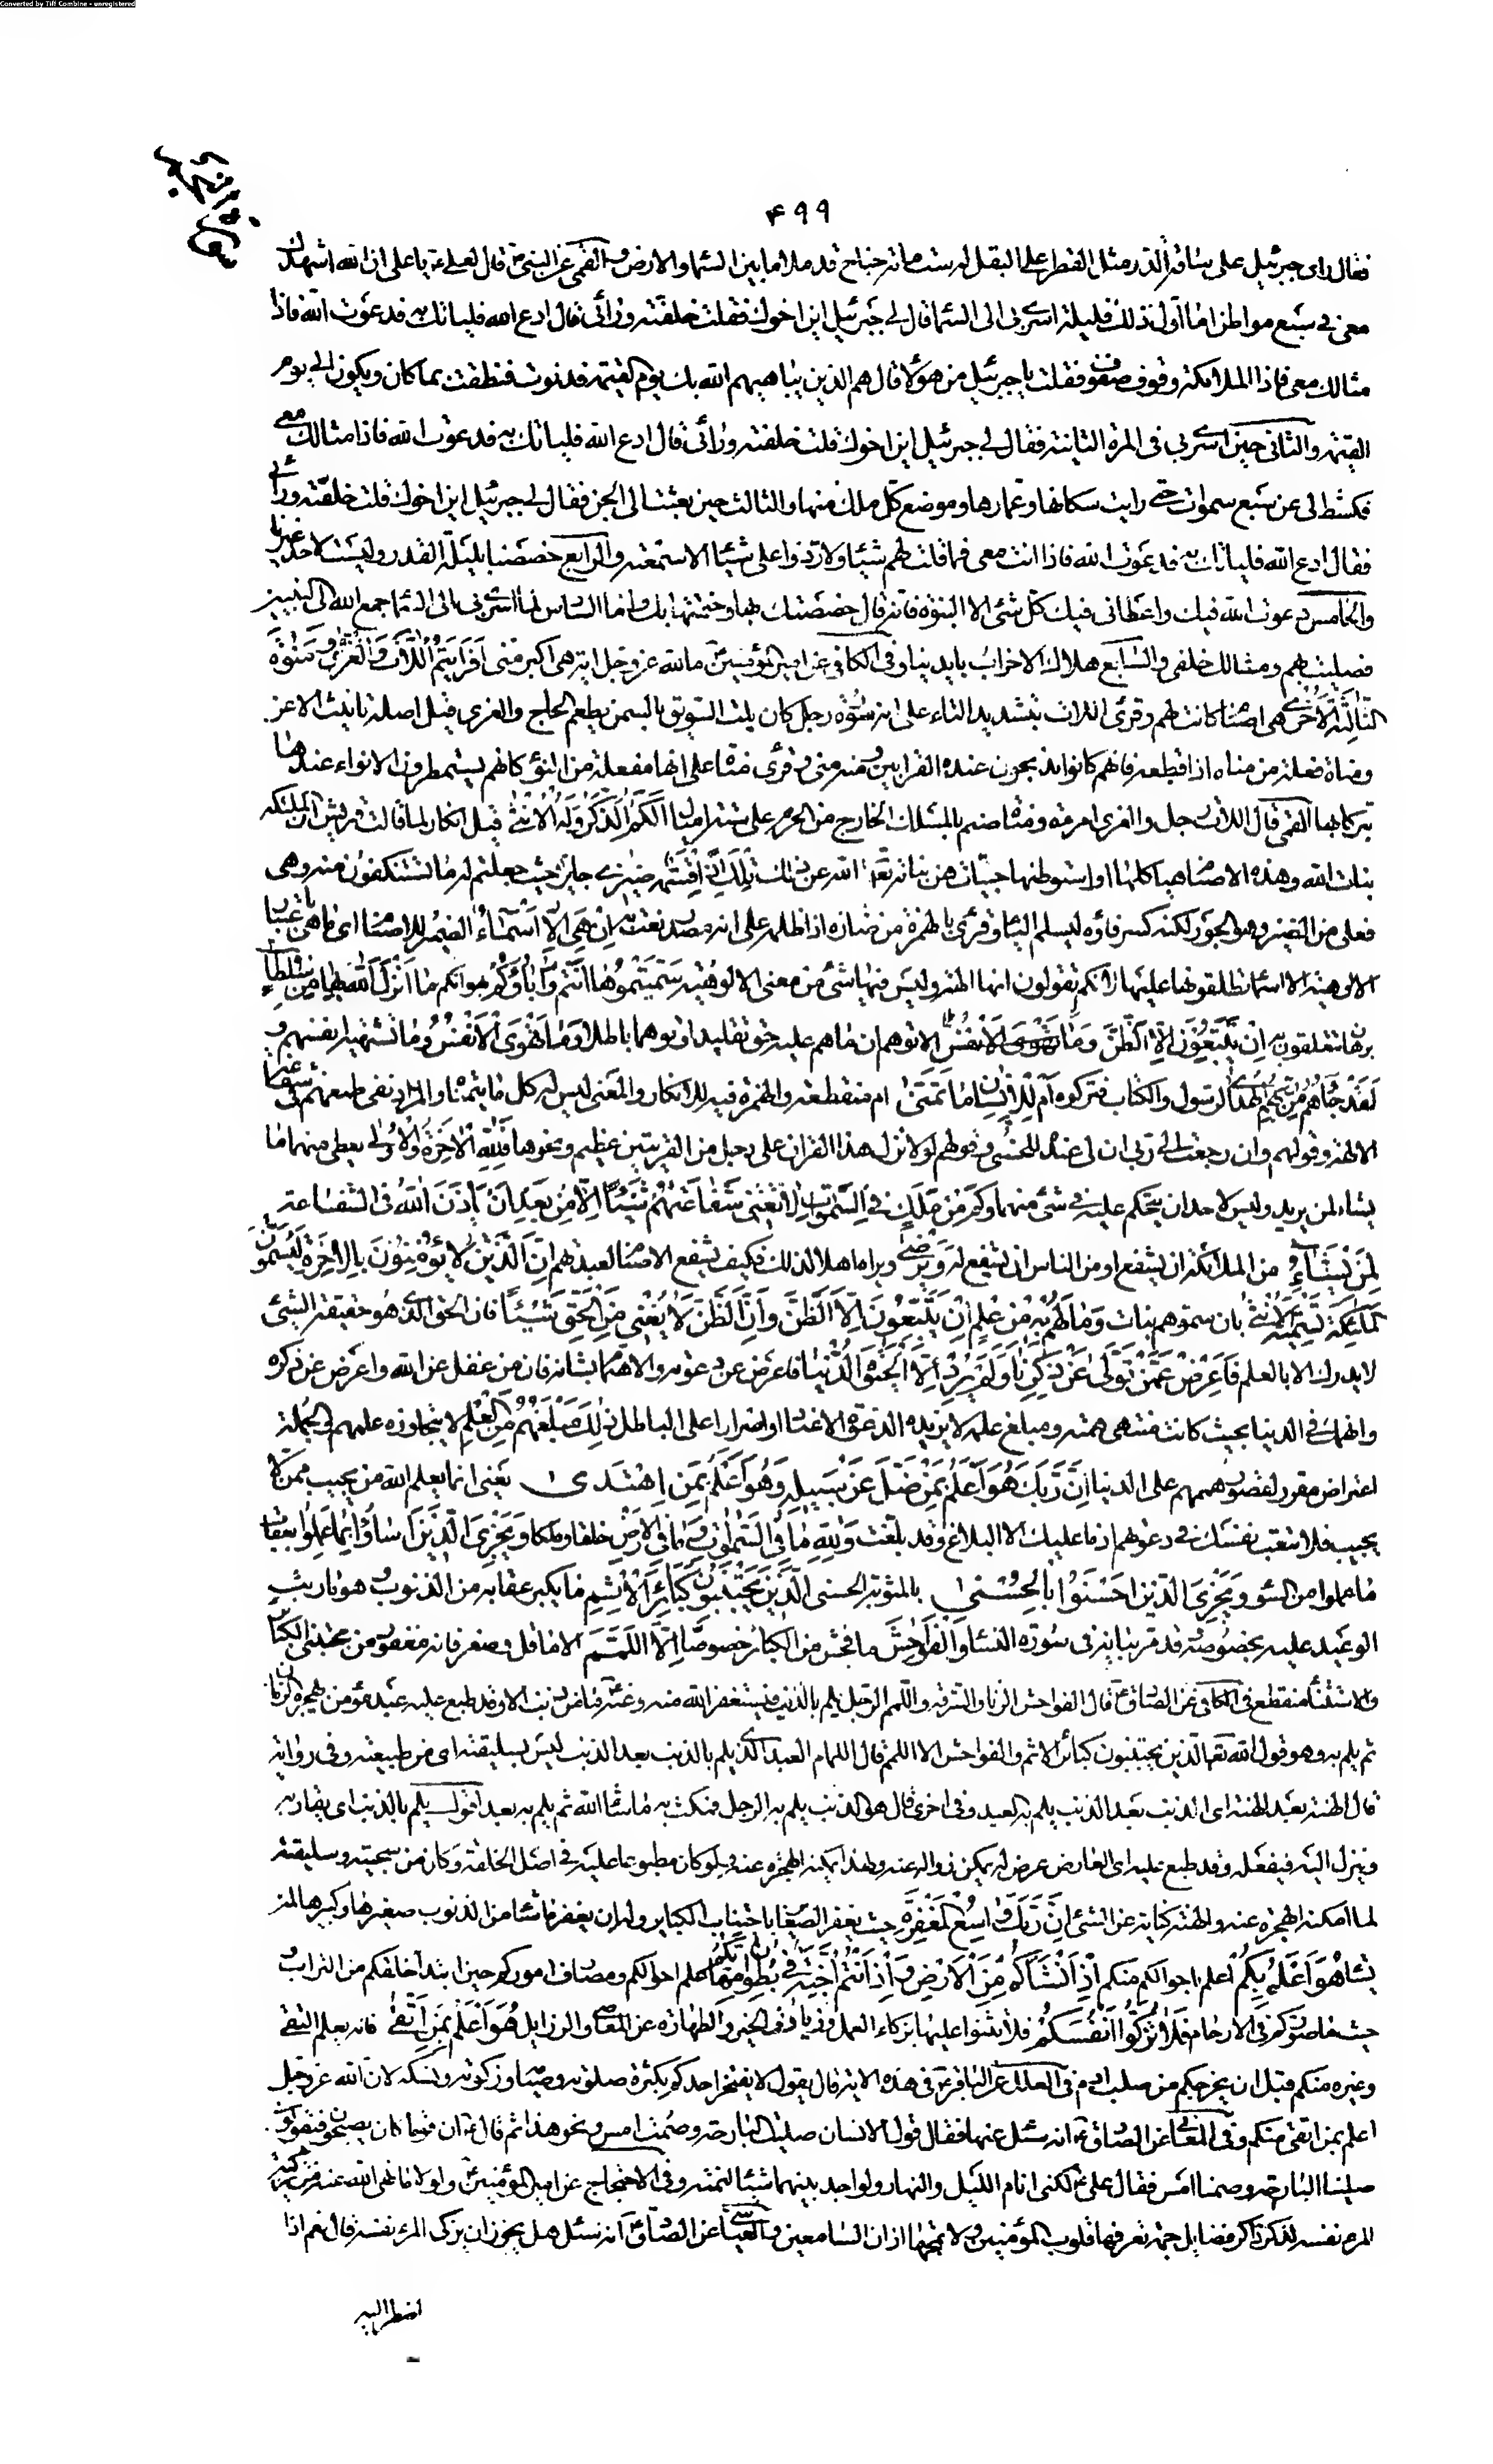 Converted by Tiff Combine - unregistered
۴۹۹
فقال رای جبرئیل علی ساقه الدر مثل القطر علی البقل له ستمائة جناح قد ملا ما بین السماء والارض والقمی عن النبی ص قال لعلی ع یا علی ان الله اشهدک
معی فی سبع مواطن اما اول ذلک فلیلة اسری بی الی السماء قال لی جبرئیل این اخوک فقلت خلفته ورائی قال ادع الله فلیاتک به فدعوت الله فاذا
مثالک معی فاذا الملائکة وقوف صفوف فقلت یا جبرئیل من هؤلاء قال هم الذین یباهیهم الله بک یوم القیمة فدنوت فنطقت بما کان ویکون الی یوم
القیمة والثانی حین اسری بی فی المرة الثانیة فقال لی جبرئیل این اخوک قلت خلفته ورائی قال ادع الله فلیاتک به فدعوت الله فاذا مثالک معی
فکشط لی عن سبع سموات حتی رایت سکانها وعمارها وموضع کل ملک منها والثالث حین بعثت الی الجن فقال لی جبرئیل این اخوک قلت خلفته ورائی
فقال ادع الله فلیاتک به فدعوت الله فاذا انت معی فما قلت لهم شیئا ولا ردوا علی شیئا الا سمعته والرابع خصصنا بلیلة القدر ولیست لاحد غیرنا
والخامس دعوت الله فیک واعطانی فیک کل شئ الا النبوة فانه قال خصصتک بها وختمتها بک واما السادس لما اسری بی الی السماء جمع الله لی النبیین
فصلیت بهم ومثالک خلفی والسابع هلاک الاحزاب بایدینا وفی الکافی عن امیر المؤمنین ع ما لله عز وجل ایة هی اکبر منی اَفَرَاَیْتُمُ اللّاتَ وَالْعُزّی وَمَنوةَ
الثّالِثَةَ الْاُخْری هی اصنام کانت لهم وقرئ اللات بتشدید التاء علی انه سموه رجل کان یلت السویق بالسمن ویطعم الحاج والعزی قیل اصله تانیث الاعز
ومناة فعلة من مناه اذا قطعه فانهم کانوا یذبحون عنده القرابین ومنه منی وقرئ مناة علی انها مفعلة من النوء کانهم یستمطرون الانواء عندها
تبرکا بها القمی قال اللات رجل والعزی امرءة ومناة صنم بالمشلل الخارج من الحرم علی ستة امیال اَلَکُمُ الذَّکَرُ وَلَهُ الْاُنْثی قیل انکار لما قالت قریش ان الملئکة
بنات الله وهذه الاصنام هیاکلها او استوطنها جنیات هن بناته تعالی الله عن ذلک تِلْکَ اِذاً قِسْمَةٌ ضیزی جایرة حیث جعلتم له ما تستنکفون منه وهی
فعلی من الضیز وهو الجور لکنه کسر فاؤه لیسلم الیاء وقرئ بالهمزة من ضازه اذا ظلمه علی انه مصدر نعت به اِنْ هِیَ اِلّا اَسْماءٌ الضمیر للاصنام ای ما هی باعتبار
الالوهیة الا اسماء تطلقونها علیها لانکم تقولون انها الهة ولیس فیها شئ من معنی الالوهیة سَمَّیْتُمُوها اَنْتُمْ وَآباؤُکُمْ بهوائکم ما اَنْزَلَ اللّهُ بِها مِنْ سُلْطانٍ
برهان تتعلقون به اِنْ یَتَّبِعُونَ اِلّا الظَّنَّ وَما تَهْوَی الْاَنْفُسُ الا توهم ان ما هم علیه حق تقلیدا وتوهما باطلا وَما تَهْوَی الْاَنْفُسُ وما تشتهیه انفسهم و
لَقَدْ جاءَهُمْ مِنْ رَبِّهِمُ الْهُدی الرسول والکتاب فترکوه اَمْ لِلْاِنْسانِ ما تَمَنّی ام منقطعة والهمزة فیه للانکار والمعنی لیس له کل ما یتمناه والمراد نفی طمعهم فی شفاعة
الالهة وقولهم وان رجعت الی ربی ان لی عنده للحسنی وقولهم لولا نزل هذا القران علی رجل من القریتین عظیم ونحوها فَلِلّهِ الْآخِرَةُ وَالْاُولی یعطی منهما ما
یشاء لمن یرید ولیس لاحد ان یتحکم علیه فی شئ منهما وَکَمْ مِنْ مَلَکٍ فِی السَّمواتِ لا تُغْنی شَفاعَتُهُمْ شَیْئاً اِلّا مِنْ بَعْدِ اَنْ یَأْذَنَ اللّهُ فی الشفاعة
لِمَنْ یَشاءُ من الملائکة ان یشفع او من الناس ان یشفع له وَیَرْضی ویراه اهلا لذلک فکیف یشفع الاصنام لعبدتهم اِنَّ الَّذینَ لا یُؤْمِنُونَ بِالْآخِرَةِ لَیُسَمُّونَ
الْمَلائِکَةَ تَسْمِیَةَ الْاُنْثی بان سموهم بنات وَما لَهُمْ بِهِ مِنْ عِلْمٍ اِنْ یَتَّبِعُونَ اِلّا الظَّنَّ وَاِنَّ الظَّنَّ لا یُغْنی مِنَ الْحَقِّ شَیْئاً فان الحق الذی هو حقیقة الشئ
لا یدرک الا بالعلم فَاَعْرِضْ عَمَّنْ تَوَلّی عَنْ ذِکْرِنا وَلَمْ یُرِدْ اِلّا الْحَیوةَ الدُّنْیا فاعرض عن دعوته والاهتمام بشانه فان من غفل عن الله واعرض عن ذکره
وانهمک فی الدنیا بحیث کانت منتهی همته ومبلغ علمه لا یزیده الدعوة الا عنادا واصرارا علی الباطل ذلِکَ مَبْلَغُهُمْ مِنَ الْعِلْمِ لا یتجاوزه علمهم والجملة
اعتراض مقرر لقصور هممهم علی الدنیا اِنَّ رَبَّکَ هُوَ اَعْلَمُ بِمَنْ ضَلَّ عَنْ سَبیلِهِ وَهُوَ اَعْلَمُ بِمَنِ اهْتَدی یعنی انما یعلم الله من یجیب ممن لا
یجیب فلا تتعب نفسک فی دعوتهم اذ ما علیک الا البلاغ وقد بلغت وَلِلّهِ ما فِی السَّمواتِ وَما فِی الْاَرْضِ خلقا وملکا وَیَجْزِیَ الَّذینَ اَساؤُا بِما عَمِلُوا بعقاب
ما عملوا من السوء وَیَجْزِیَ الَّذینَ اَحْسَنُوا بِالْحُسْنی بالمثوبة الحسنی اَلَّذینَ یَجْتَنِبُونَ کَبائِرَ الْاِثْمِ ما یکبر عقابه من الذنوب وهو ما رتب
الوعید علیه بخصوصه قد مر بیانه فی سورة النساء وَالْفَواحِشَ ما فحش من الکبائر خصوصا اِلَّا اللَّمَمَ الا ما قل وصغر فانه مغفور من مجتنبی الکبائر
والاستثناء منقطع فی الکافی عن الصادق ع قال الفواحش الزنا والسرقة واللمم الرجل یلم بالذنب فیستغفر الله منه وعنه ع ما من ذنب الا وقد طبع علیه عبد مؤمن یهجره الزمان
ثم یلم به وهو قول الله تعالی الذین یجتنبون کبائر الاثم والفواحش الا اللمم قال اللمام العبد الذی یلم بالذنب بعد الذنب لیس بسلیقته ای من طبیعته وفی روایة
قال الهنة بعد الهنة ای الذنب بعد الذنب یلم به العبد وفی اخری قال هو الذنب یلم به الرجل فمکث به ما شاء الله ثم یلم به بعد اقول یلم بالذنب ای یقاربه
وینزل الیه فیفعله وقد طبع علیه ای لعارض عرض له یمکن زواله عنه ولهذا یمکنه الهجرة عنه ولو کان مطبوعا علیه فی اصل الخلقة وکان من سجیته وسلیقته
لما امکنه الهجرة عنه والهنة کنایة عن الشئ اِنَّ رَبَّکَ واسِعُ الْمَغْفِرَةِ حیث یغفر الصغایر باجتناب الکبایر وله ان یغفر ما شاء من الذنوب صغیرها وکبیرها لمن
یشاء هُوَ اَعْلَمُ بِکُمْ اعلم باحوالکم منکم اِذْ اَنْشَاَکُمْ مِنَ الْاَرْضِ وَاِذْ اَنْتُمْ اَجِنَّةٌ فی بُطُونِ اُمَّهاتِکُمْ علم احوالکم ومصارف امورکم حین ابتدا خلقکم من التراب
حیث ما صورکم فی الارحام فَلا تُزَکُّوا اَنْفُسَکُمْ فلا تثنوا علیها بزکاء العمل وزیادة الخیر والطهارة عن المعاصی والرذایل هُوَ اَعْلَمُ بِمَنِ اتَّقی فانه یعلم التقی
وغیره منکم قبل ان یخرجکم من صلب ادم فی العلل عن الباقر ع فی هذه الایة قال یقول لا یفتخر احدکم بکثرة صلوته وصیامه وزکوته ونسکه لان الله عز وجل
اعلم بمن اتقی منکم وفی المعانی عن الصادق ع انه سئل عنها فقال قول الانسان صلیت البارحة وصمت امس ونحو هذا ثم قال ع ان قوما کان یصبحون فیقولون
صلینا البارحة وصمنا امس فقال علی ع لکنی انام اللیل والنهار ولو اجد بینهما شیئا لنمته وفی الاحتجاج عن امیر المؤمنین ع ولولا ما نهی الله عنه من تزکیة
المرء نفسه لذکر ذاکر فضایل جمة تعرفها قلوب المؤمنین ولا تمجها اذان السامعین والعیاشی عن الصادق ع انه سئل هل یجوز ان یزکی المرء نفسه قال نعم اذا
اضطر الیه